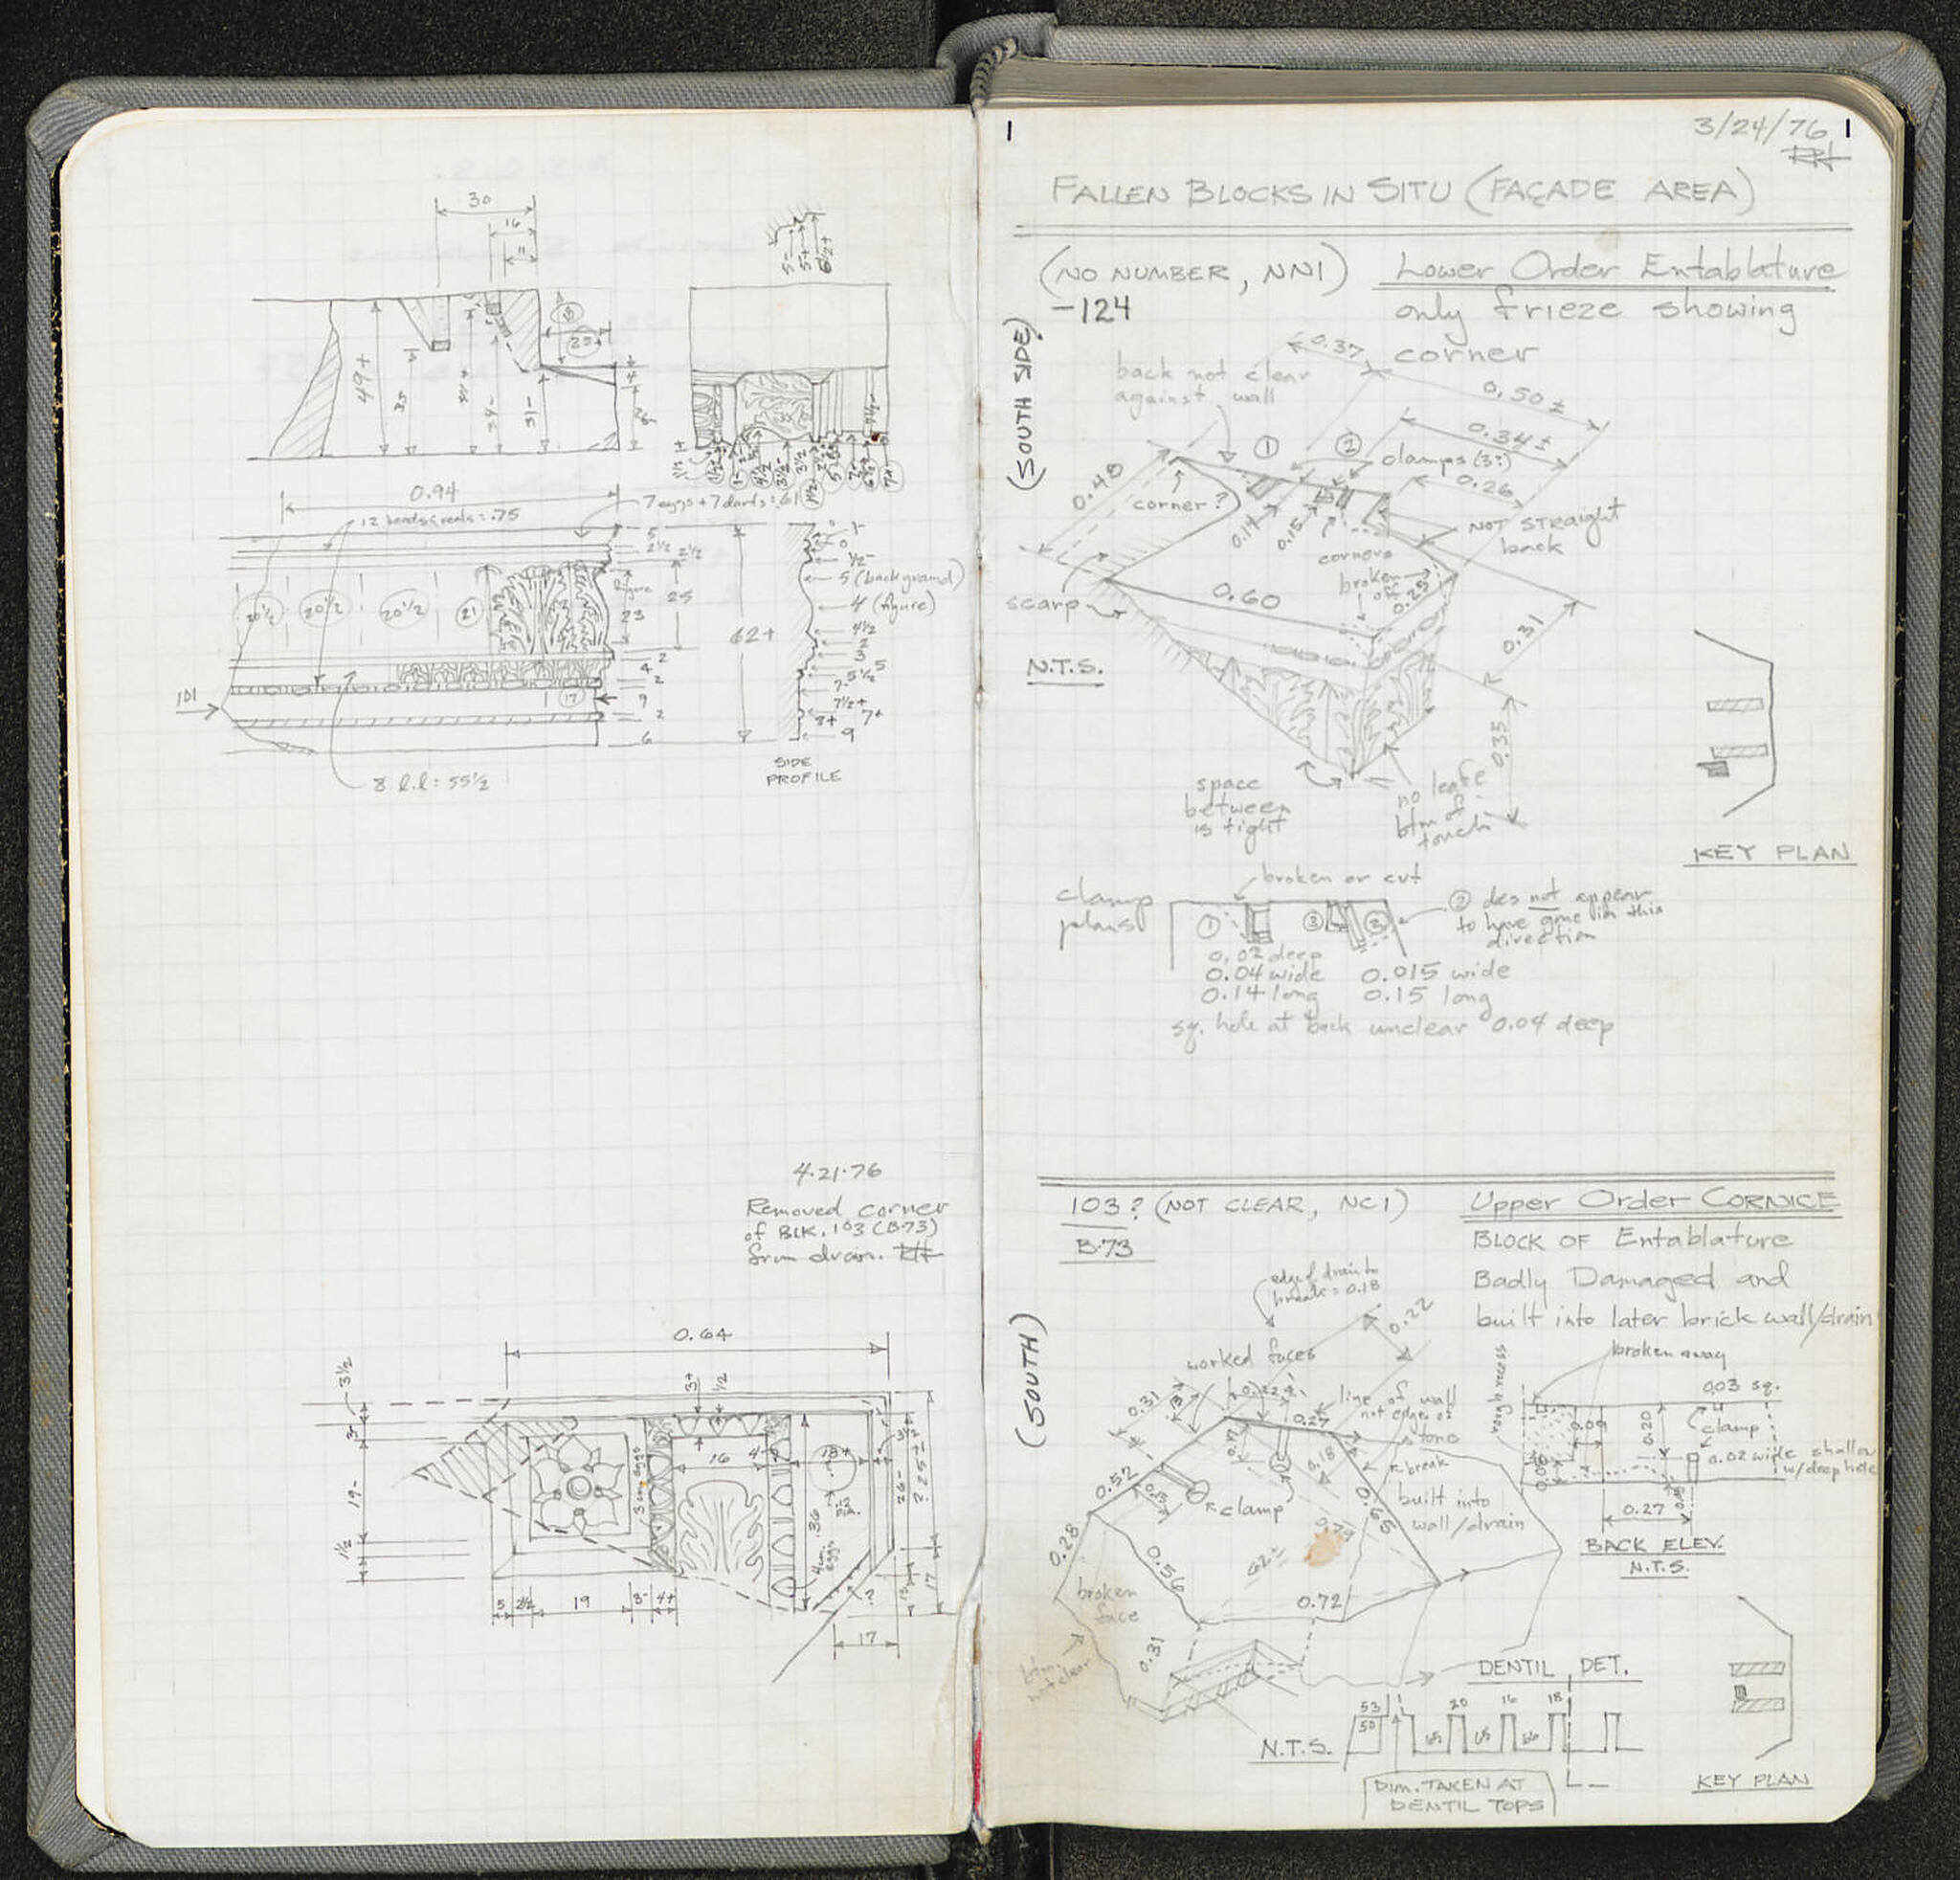 30
16
11
5-
5+
6½+
13
25+
49+
35
34-
31-
4
0.94
12 beads & reels = .75
7 eggs + 7 darts = .61
5
2½
2½
20½
20½
20½
21
figure
23
25
2
4
2
9
17
2
6
101
8 l.l = 55½
62+
1-
0
½-
5 (background)
4 (figure)
4½
2
3
5
5½
7-
7½+
7+
8+
9
SIDE
PROFILE
4·21·76
Removed corner
of BLK. 103 (B-73)
from drain. RH
0.64
3½
3-
19-
1½
3+
½
3 cm. eggs
16
4-
18+
.36
4 cm.
eggs
26-
17
?
5
2½
19
3-
4+
17
1
3/24/76
1
RH
FALLEN BLOCKS IN SITU (FAÇADE AREA)
(NO NUMBER, NN1)
Lower Order Entablature
-124
only frieze showing
corner
(SOUTH SIDE)
back not clear
against wall
0.37
0.50±
0.34±
1
2
clamps (3?)
0.26
0.48
corner?
0.14
0.15
NOT STRAIGHT
back
corners
broken
off
0.25
scarp
0.60
0.31
N.T.S.
0.35
space
between
is tight
no leafe
btm of
touch
KEY PLAN
clamp
plans
broken or cut
1
3
2
2 does not appear
to have gone in this
direction
0.02 deep
0.04 wide
0.14 long
0.015 wide
0.15 long
sq. hole at back unclear 0.04 deep
103? (NOT CLEAR, NC1)
B-73
Upper Order CORNICE
BLOCK OF Entablature
Badly Damaged and
built into later brick wall/drain
(SOUTH)
edge of drain to
break = 0.18
0.22
worked faces
0.31
line of wall
not edge of
stone
0.27
0.18
break
0.52
clamp
built into
wall/drain
0.65
0.28
0.56
0.72
broken
face
0.31
btm.
not clear
rough recess
broken away
0.03 sq.
0.09
0.20
clamp
0.02 wide shallow
w/deep hole
0.27
BACK ELEV.
N.T.S.
DENTIL DET.
53
50
20
16
18
65
65
66
N.T.S.
Dim. TAKEN AT
DENTIL TOPS
KEY PLAN